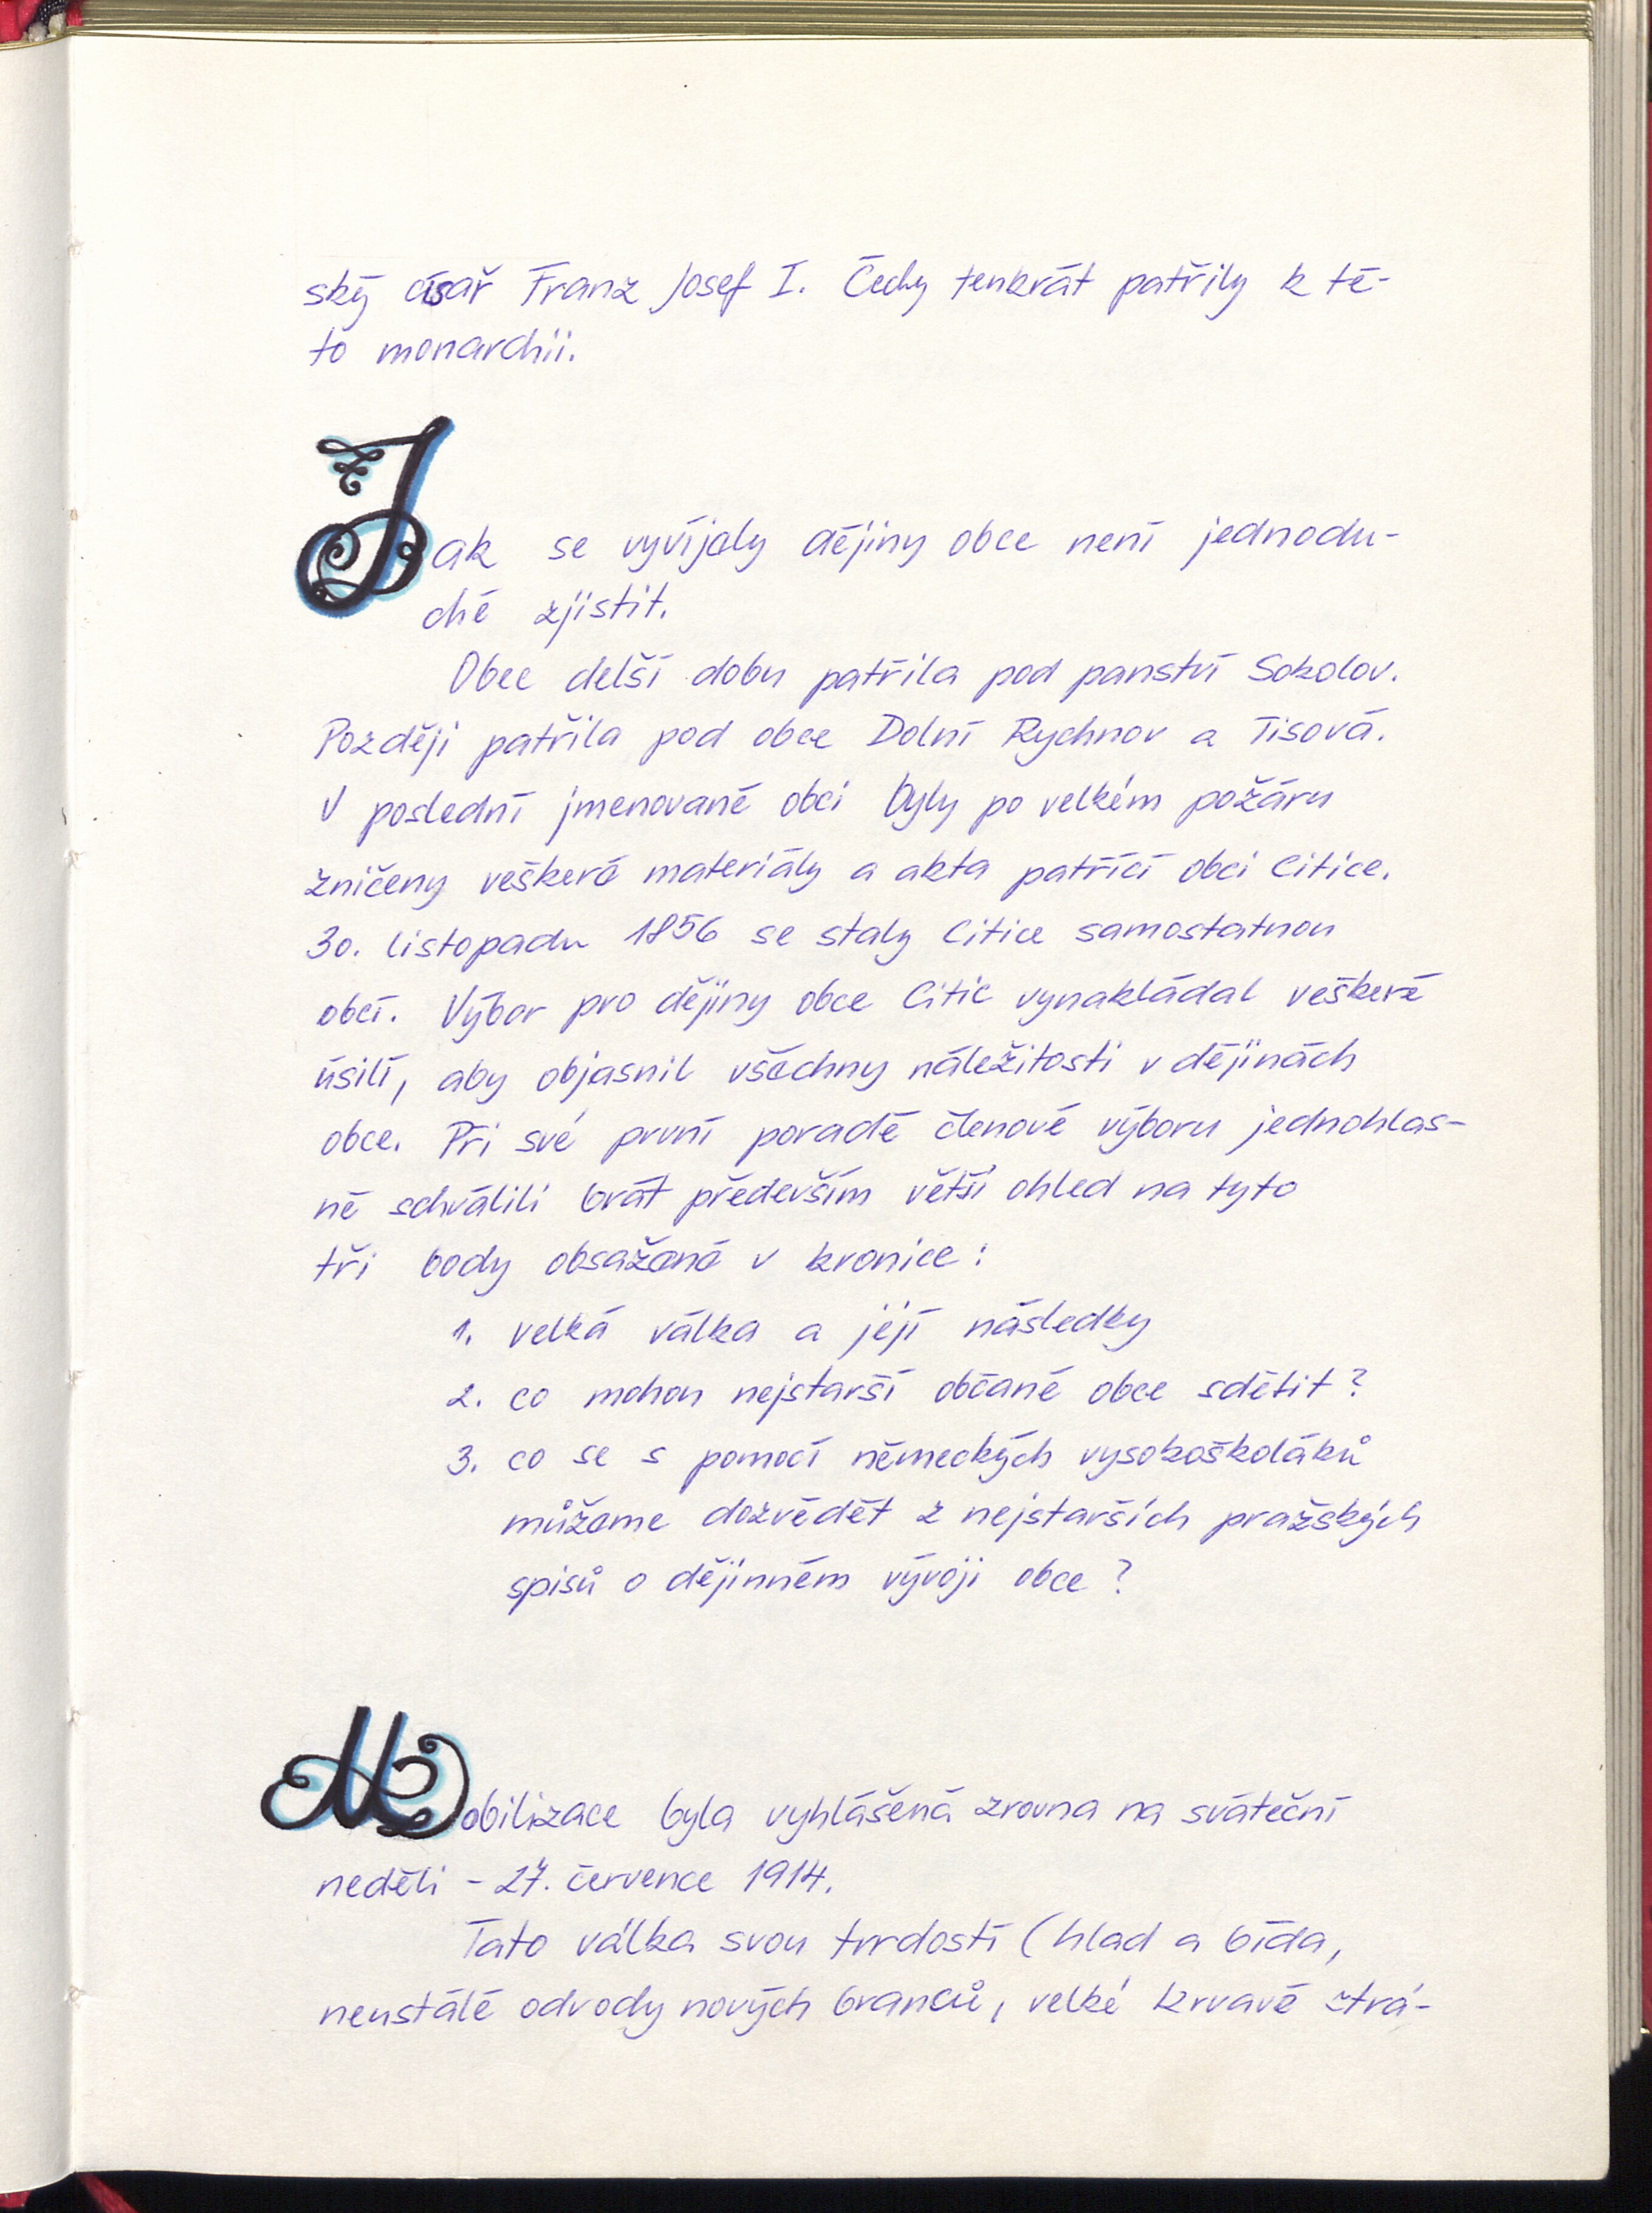 ský císař Franz Josef I. Čechy tenkrát patřily k té-
to monarchii.
Jak se vyvíjaly dějiny obce není jednodu-
ché zjistit.
Obec delší dobu patřila pod panství Sokolov.
Později patřila pod obce Dolní Rychnov a Tisová.
V poslední jmenované obci byly po velkém požáru
zničeny veškeré materiály a akta patřící obci Citice.
30. listopadu 1856 se staly Citice samostatnou
obcí. Výbor pro dějiny obce Citic vynakládal veškeré
úsilí, aby objasnil všechny náležitosti v dějinách
obce. Při své první poradě členové výboru jednohlas-
ně schválili brát především větší ohled na tyto
tři body obsažené v kronice:
1. velká válka a její následky
2. co mohou nejstarší občané obce sdělit?
3. co se s pomocí německých vysokoškoláků
můžeme dozvědět z nejstarších pražských
spisů o dějinném vývoji obce?
Mobilizace byla vyhlášená zrovna na sváteční
neděli - 27. července 1914.
Tato válka svou tvrdostí (hlad a bída,
neustálé odvody nových branců, velké krvavé ztrá-